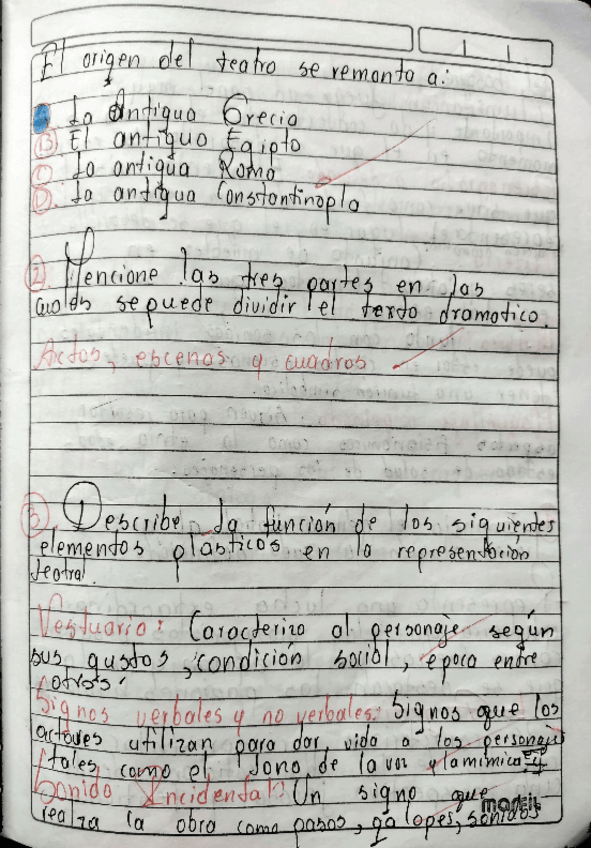 El origen del teatro se remonta a:
La Antigua Grecia
B El antiguo Egipto
C La antigua Roma
D. La antigua Constantinopla
2. Mencione las tres partes en las
cuales se puede dividir el texto dramatico.
Actos, escenas y cuadros
3 Describe la función de los siguientes
elementos plásticos en la representación
teatral.
Vestuario: Caracteriza al personaje según
sus gustos, condición social, epoca entre
otros.
Signos verbales y no verbales: Signos que los
actores utilizan para dar vida a los personajes
tales como el tono de la voz y la mimica
Sonido Incidental: Un signo que
realza la obra como pasos, galopes, sonidos